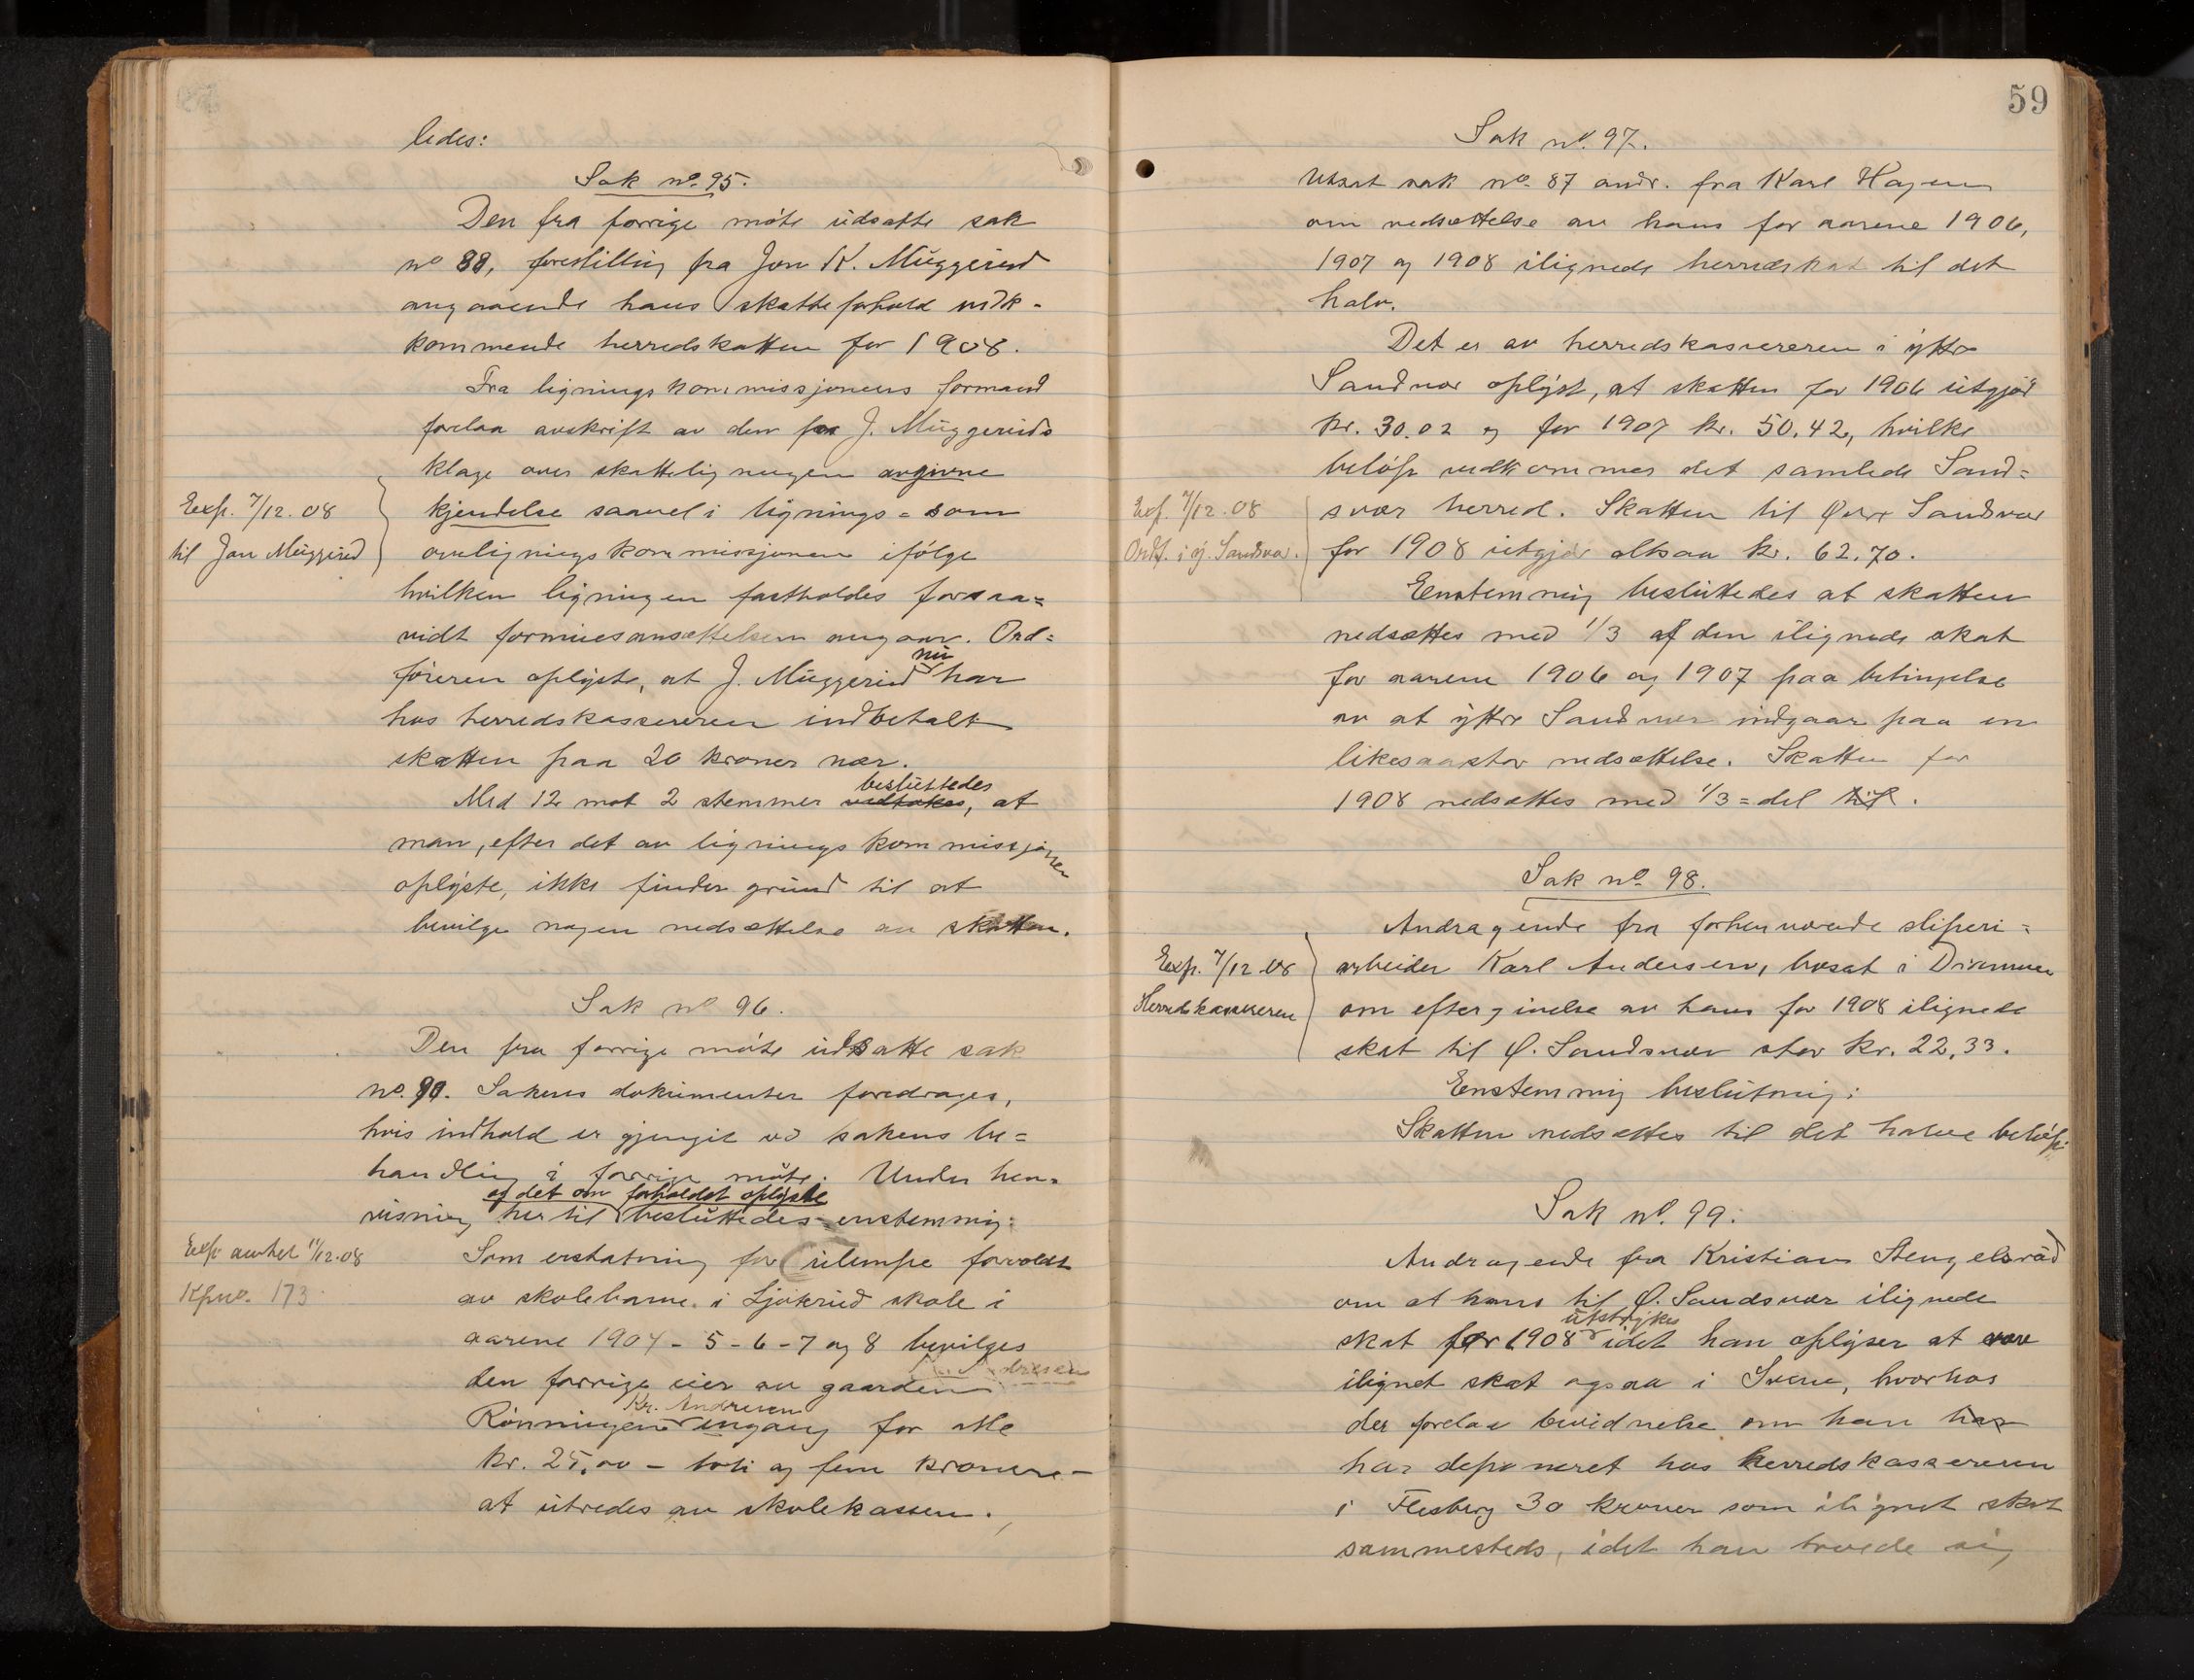 ledes:
Sak no. 95.
Den fra forrige møte üdsatte sak
no 88, forestilling fra Jon K. Müggerüd
angaaende hans skatteforhold vedk-
kommende herredskatten for 1908.
Fra ligningskommissjonens formand
forelaa avskrift av den paa J. Müggerüds
klage over skatteligningen avgivne
Exp. 7/12.08
kjendelse saavel i lignings= som
til Jon Müggerüd
overligningskommissjonen ifølge
hvilken ligningen fastholdes forsaa=
vidt formuesansættelsen angaar. Ord=
føreren oplyste, at J. Müggerüd nü har
hos herredskassereren indbetalt
skatten paa 20 kroner nær.
Med 12 mot 2 stemmer vedtokes beslüttedes, at
man, efter det av ligningskommissjonen
oplyste, ikke finder gründ til at
bevilge nogen nedsættelse av skatten.
Sak no 96.
Den fra forrige møte üdsatte sak
no. 90. Sakens dokümenter foredrages,
hvis indhold er gjengit ved sakens be=
handling i forrige møte. Under hen=
visning hertil og det om forholdet oplyste beslüttedes enstemmig:
Exp. amtet 11/12.08
Som erstatning for ülempe forvoldt
Kpno. 173
av skolebarne i Ljøkrüd skole i
aarene 1904-5-6-7 og 8 bevilges
den forrige eier av gaarden
Rønningen Kr. Andresen engang for alle
kr. 25,00 - toti og fem kroner -
at ütredes av skolekassen.
59
Sak no. 97.
Utsat sak no. 87 andr. fra Karl Hagen
om nedsættelse av hans for aarene 1906,
1907 og 1908 ilignede herredskat til det
halv.
Det er av herredskassereren i ytre
Sandsvær oplyst, at skatten for 1906 ütgjør
kr. 30.02 og for 1907 kr. 50.42, hvilke
beløp vedkommer det samlede Sand=
Exp. 7/12.08
svær herred. Skatten til Øvre Sandsvær
Ordf. i y. Sandsvær.
for 1908 ütgjør altsaa kr. 62.70.
Enstemmig beslüttedes at skatten
nedsættes med 1/3 af den ilignede skat
for aarene 1906 og 1907 paa betingelse
av at ytre Sandsvær indgaar paa en
likesaastor nedsættelse. Skatten for
1908 nedsættes med 1/3=del til.
Sak no. 98.
Andragende fra forhenværende sliperi=
Exp. 7/12.08
arbeider Karl Andersen, bosat i Drammen
Herredskassereren
om eftergivelse av hans for 1908 ilignede
skat til Ø. Sandsvær stor kr. 22,33.
Enstemmig beslütning:
Skatten nedsættes til det halve beløp.
Sak no. 99.
Andragende fra Kristian Stengelsrüd
om at hans til Ø. Sandsvær ilignede
skat for 1908 ütstrykes idet han oplyser at være
ilignet skat ogsaa i Svene, hvorhos
der forelaa bevidnelse om han har
har deponeret hos herredskassereren
i Flesberg 30 kroner som ilignet skat
sammesteds, idet han troede sig